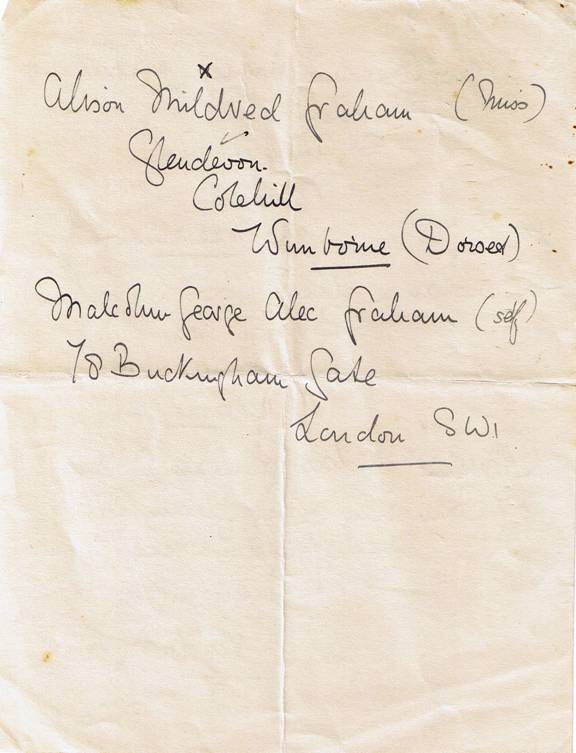 x
Alison Mildred Graham (Miss)
Glendevon.
Colehill
Wimborne (Dorset)
Malcolm George Alec Graham (self)
78 Buckingham Gate
London SW1